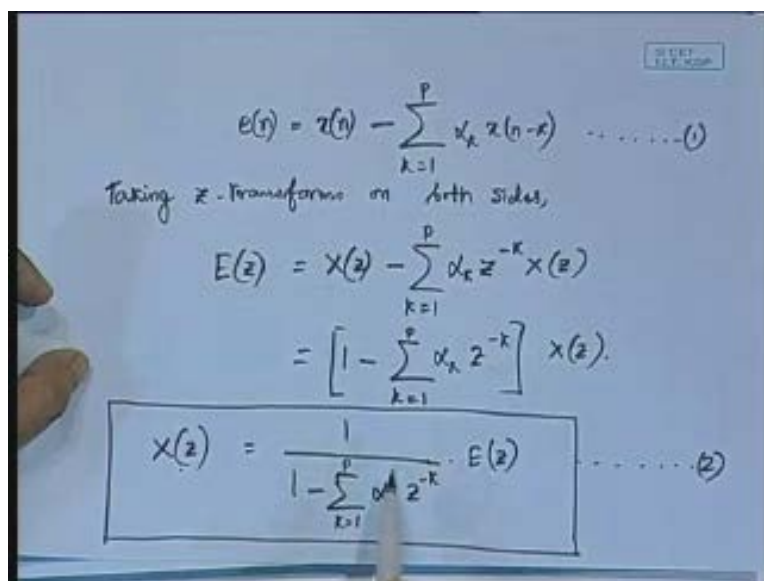 e(n) = x(n) - \sum_{k=1}^{p} α_k x(n-k) ........(1)
Taking z-transforms on both sides,
E(z) = X(z) - \sum_{k=1}^{p} α_k z^{-k} X(z)
= [1 - \sum_{k=1}^{p} α_k z^{-k}] X(z).
X(z) = \frac{1}{1 - \sum_{k=1}^{p} α z^{-k}} . E(z) .......(2)